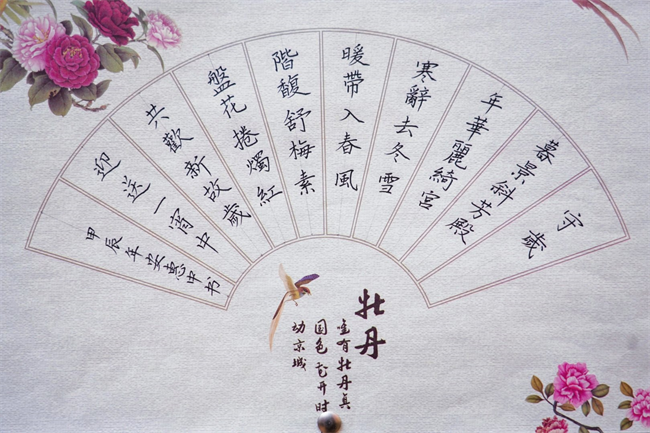 守歲
暮景斜芳殿
年華麗綺宮
寒辭去冬雪
暖帶入春風
階馥舒梅素
盤花捲燭紅
共歡新故歲
迎送一宵中
甲辰年安惠中书
牡丹
唯有牡丹真
国色花开时
动京城